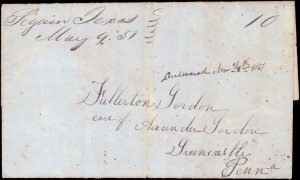 Seguin Texas
May 9. 51
10
Answered Nov 24th 1851
Fullerton Gordon
care of Axander Gordon
Greencastle
Penna